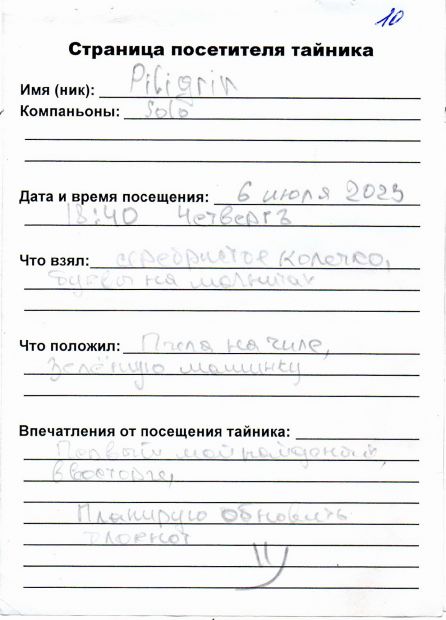 10
Страница посетителя тайника
Имя (ник): Piligrin
Компаньоны: Solo
Дата и время посещения: 6 июля 2023
18:40 Четвергъ
Что взял: серебристое колечко,
буквы на
Что положил: Пчела на чиле,
зелёную машинку
Впечатления от посещения тайника:
Первый мой найденый,
в восторге,
Планирую обновить
блокнот